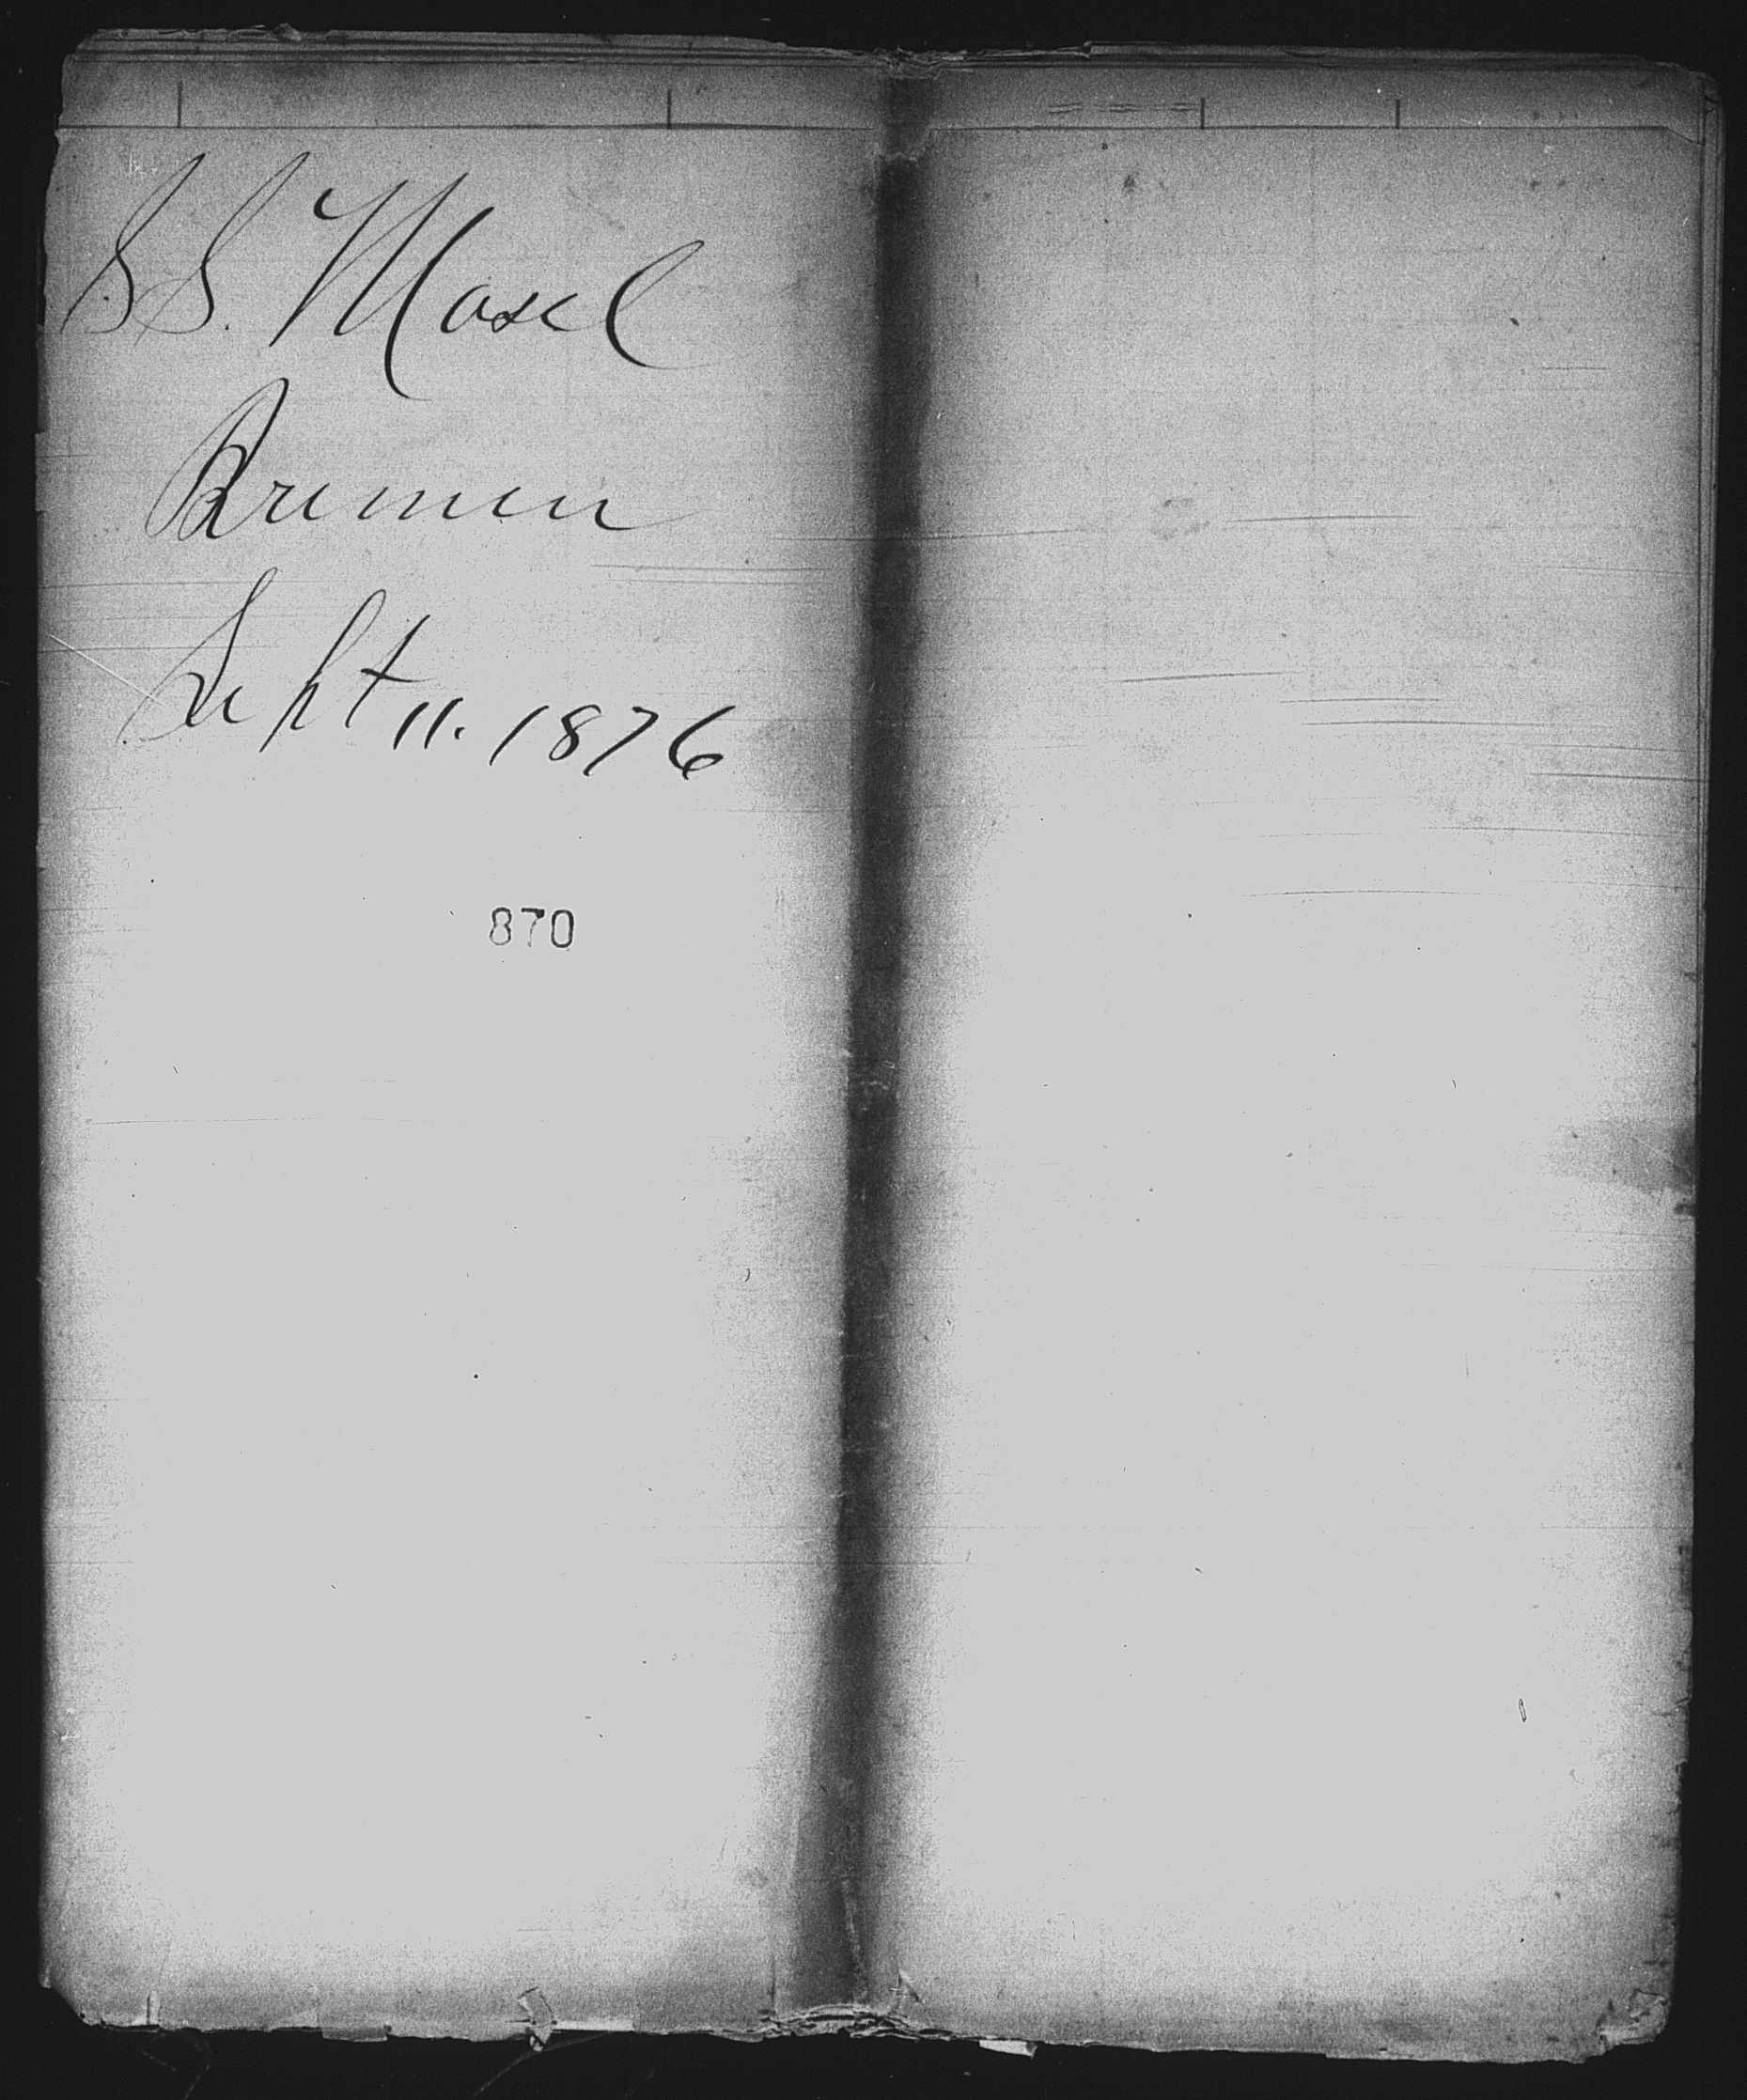 SS. Mosel
Bremen
Sept 11. 1876
870